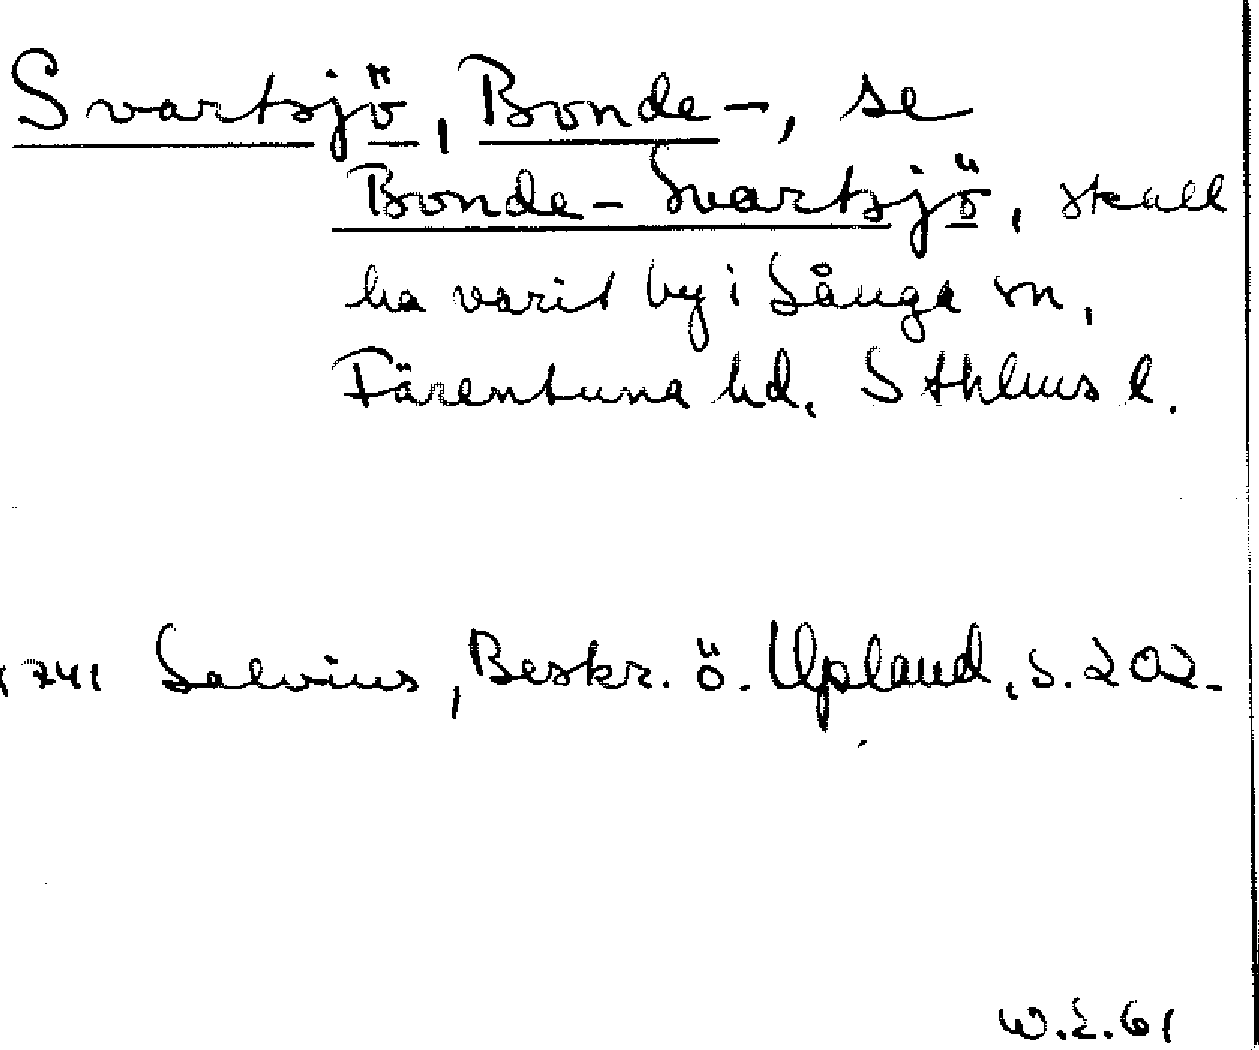 Svartsjö, Bonde-, se
Bonde-Svartsjö, skall
ha varit by i Sånga sn,
Färentuna hd, Sthlms l.
1741 Salvius, Beskr. ö. Upland, s. 202.
W.E.61